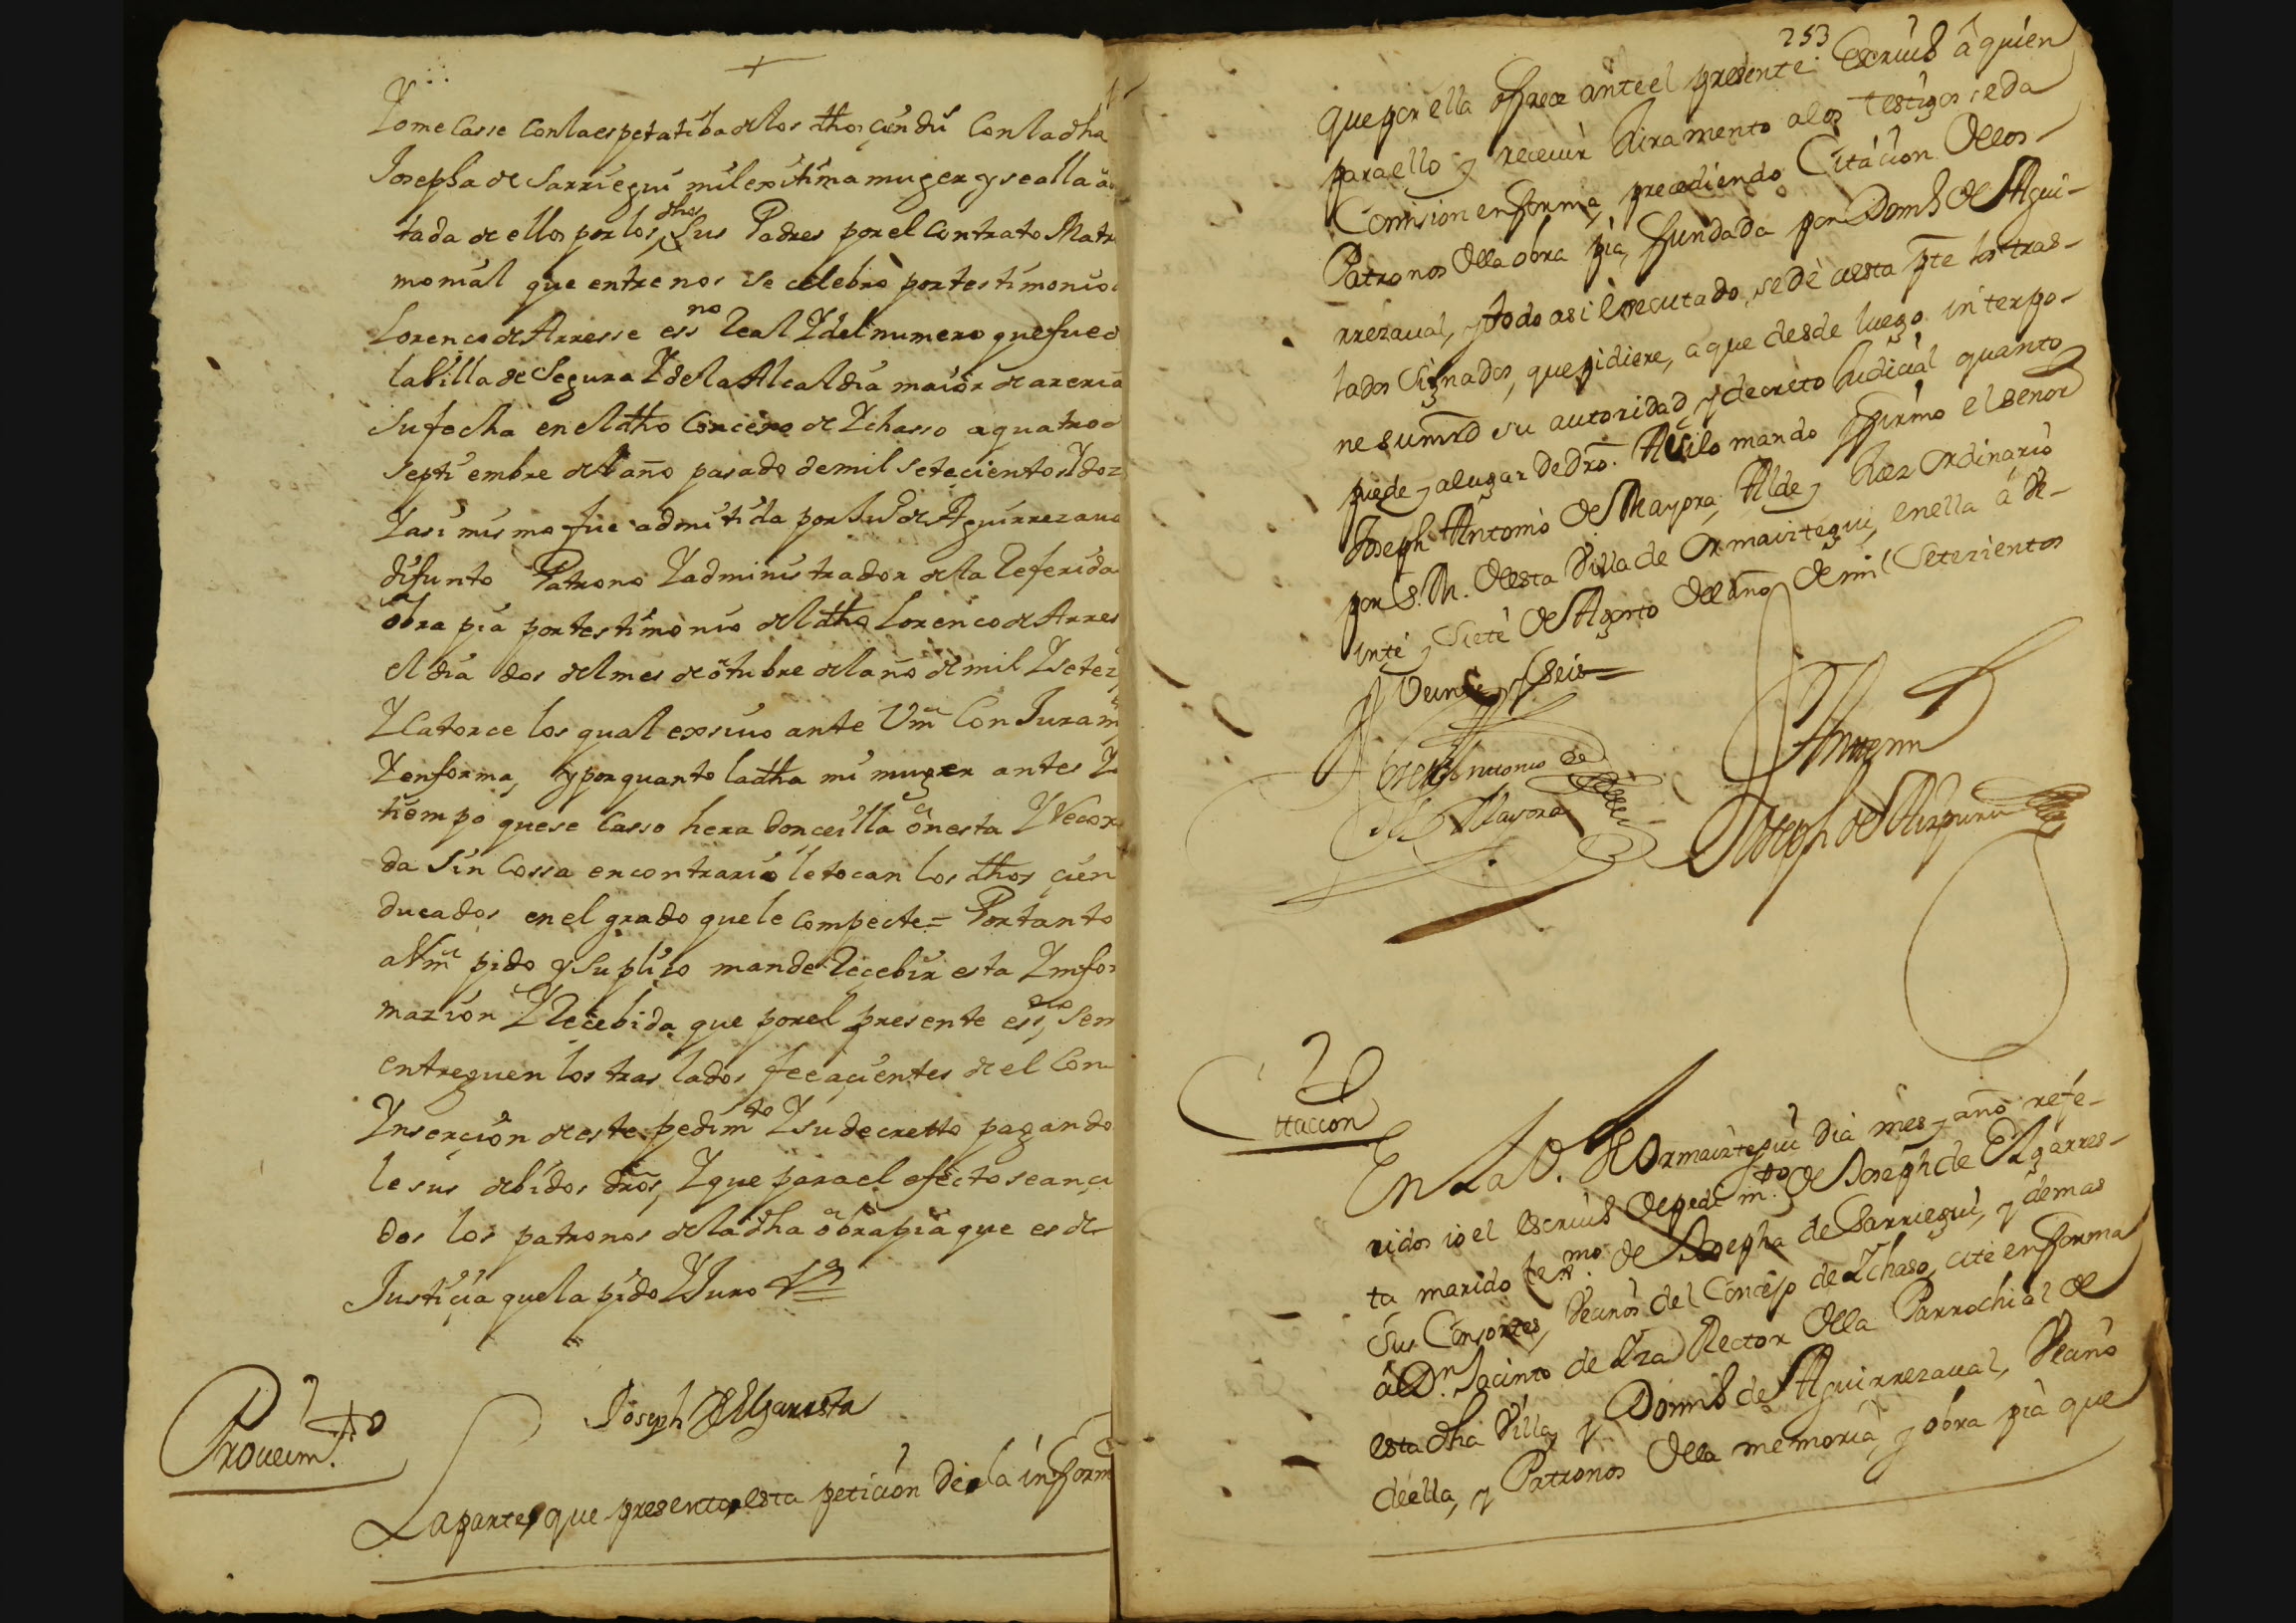 Yome Casse Conlaespetatiba de los dhos cien du Con la dha
Josepha de Sarriegui mi lexitima muger y se alla
tada de ellos por los dhos sus Padres por el Contrato Matr
monial que entre nos se celebro por testimonio
Lorenco de Arresse essno Real Y del numero que fue d
la Billa de Segura Y de la Alcaldia maior de areria
Su fecha en el dho Concexo de Ychasso a quatro d
Septiembre del año pasado de mil setecientos Y doz
Yasi mismo fue admitida por Ju.o de Aguirrezaua
difunto Patrono Y administrador de la Referida
obra pia por testimonio del dho Lorenco de Arres
el dia dos del mes de otubre del año de mil Y setez
Y Catorce los qual exsiuo ante Vm Con Juram
Y en forma, y por quanto la dha mi muger antes Y
tiempo que se Casso hera donceilla onesta Y Recox
da Sin Cossa en contrario le tocan los dhos cien
ducados en el grado que le Compecte = Por tanto
a Vm pido y Suplico mande Recebir esta Ynfor
mazion Y Recebida que por el presente essno, Sem
entreguen los traslados feeacientes de el Con
Ynsercion de este pedimto Y su decretto pagando
le sus debidos dros, Y que para el efecto sean ci
dos los patronos de la dha obra pia que es de
Justicia que la pido Y Juro Va
Joseph de Elgarresta
Proueimto
La parte, que presenta esta peticion de la inform
253
que por ella ofrece ante el presente Escriuo â quien
para ello y receuir Juramento a los testigos se da
Comision en forma, precediendo Citacion de los
Patronos de la obra pia, fundada por Domo de Agui-
rrezaual, y todo asi executado, se dè a esta pte los tras-
lados signados, que pidiere, a que desde luego interpo-
ne su mrd su autoridad, y decreto Judicial quanto
puede, y a lugar de dro. Asi lo mando y firmo el señor
Joseph Antonio de Mayora, Alde y Juez Ordinario
por S. M. de esta Villa de Ormaiztegui, en ella á Ve-
inte y siete de Agosto del año de mil Setezientos
y Veinte y Seis =
Joseph Antonio de
Mayora
Ante mi
Joseph de Aizpuru
Cittacion
En La V. de Ormaiztegui dia mes, y año refe-
ridos io el escriuo de pedimto de Joseph de Elgarres-
ta, marido lexmo de Josepha de Sarriegui, y demas
sus Consortes, Vecinos del Concejo de Ychaso, cite en forma
â Dn Jacinto de Yza Rector de la Parrochial de
esta dha Villa, y Domo de Aguirrezaual, Vecino
de ella, y Patronos de la memoria, y obra pia que